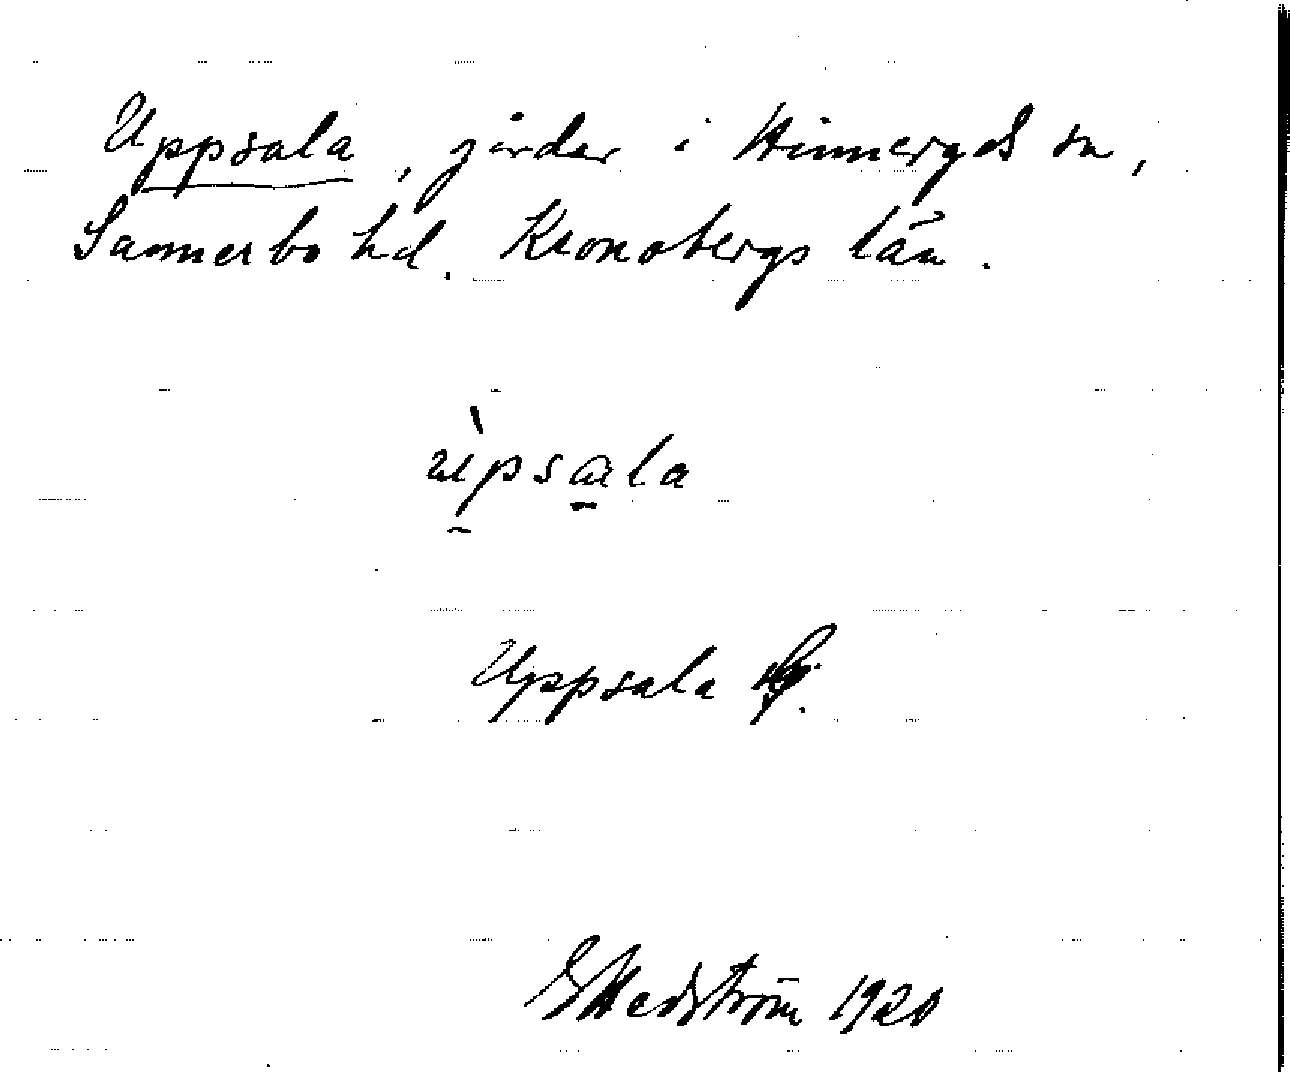 Uppsala, gårdar i Hinneryds sn,
Sunnerbo hd. Kronobergs län.
ùpsala
Uppsala
G Hedström 1920